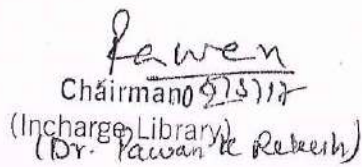 Pawan
Chairman 9/3/17
(Incharge Library)
(Dr. Pawan K Rakesh)